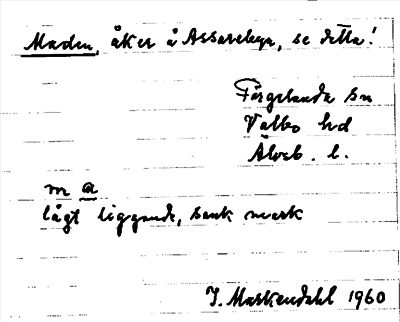 Maden, åker å Assarebyn, se detta!
Färgelanda sn
Valbo hd
Älvsb. l.
m a
lågt liggande, sank mark
I. Markendahl 1960